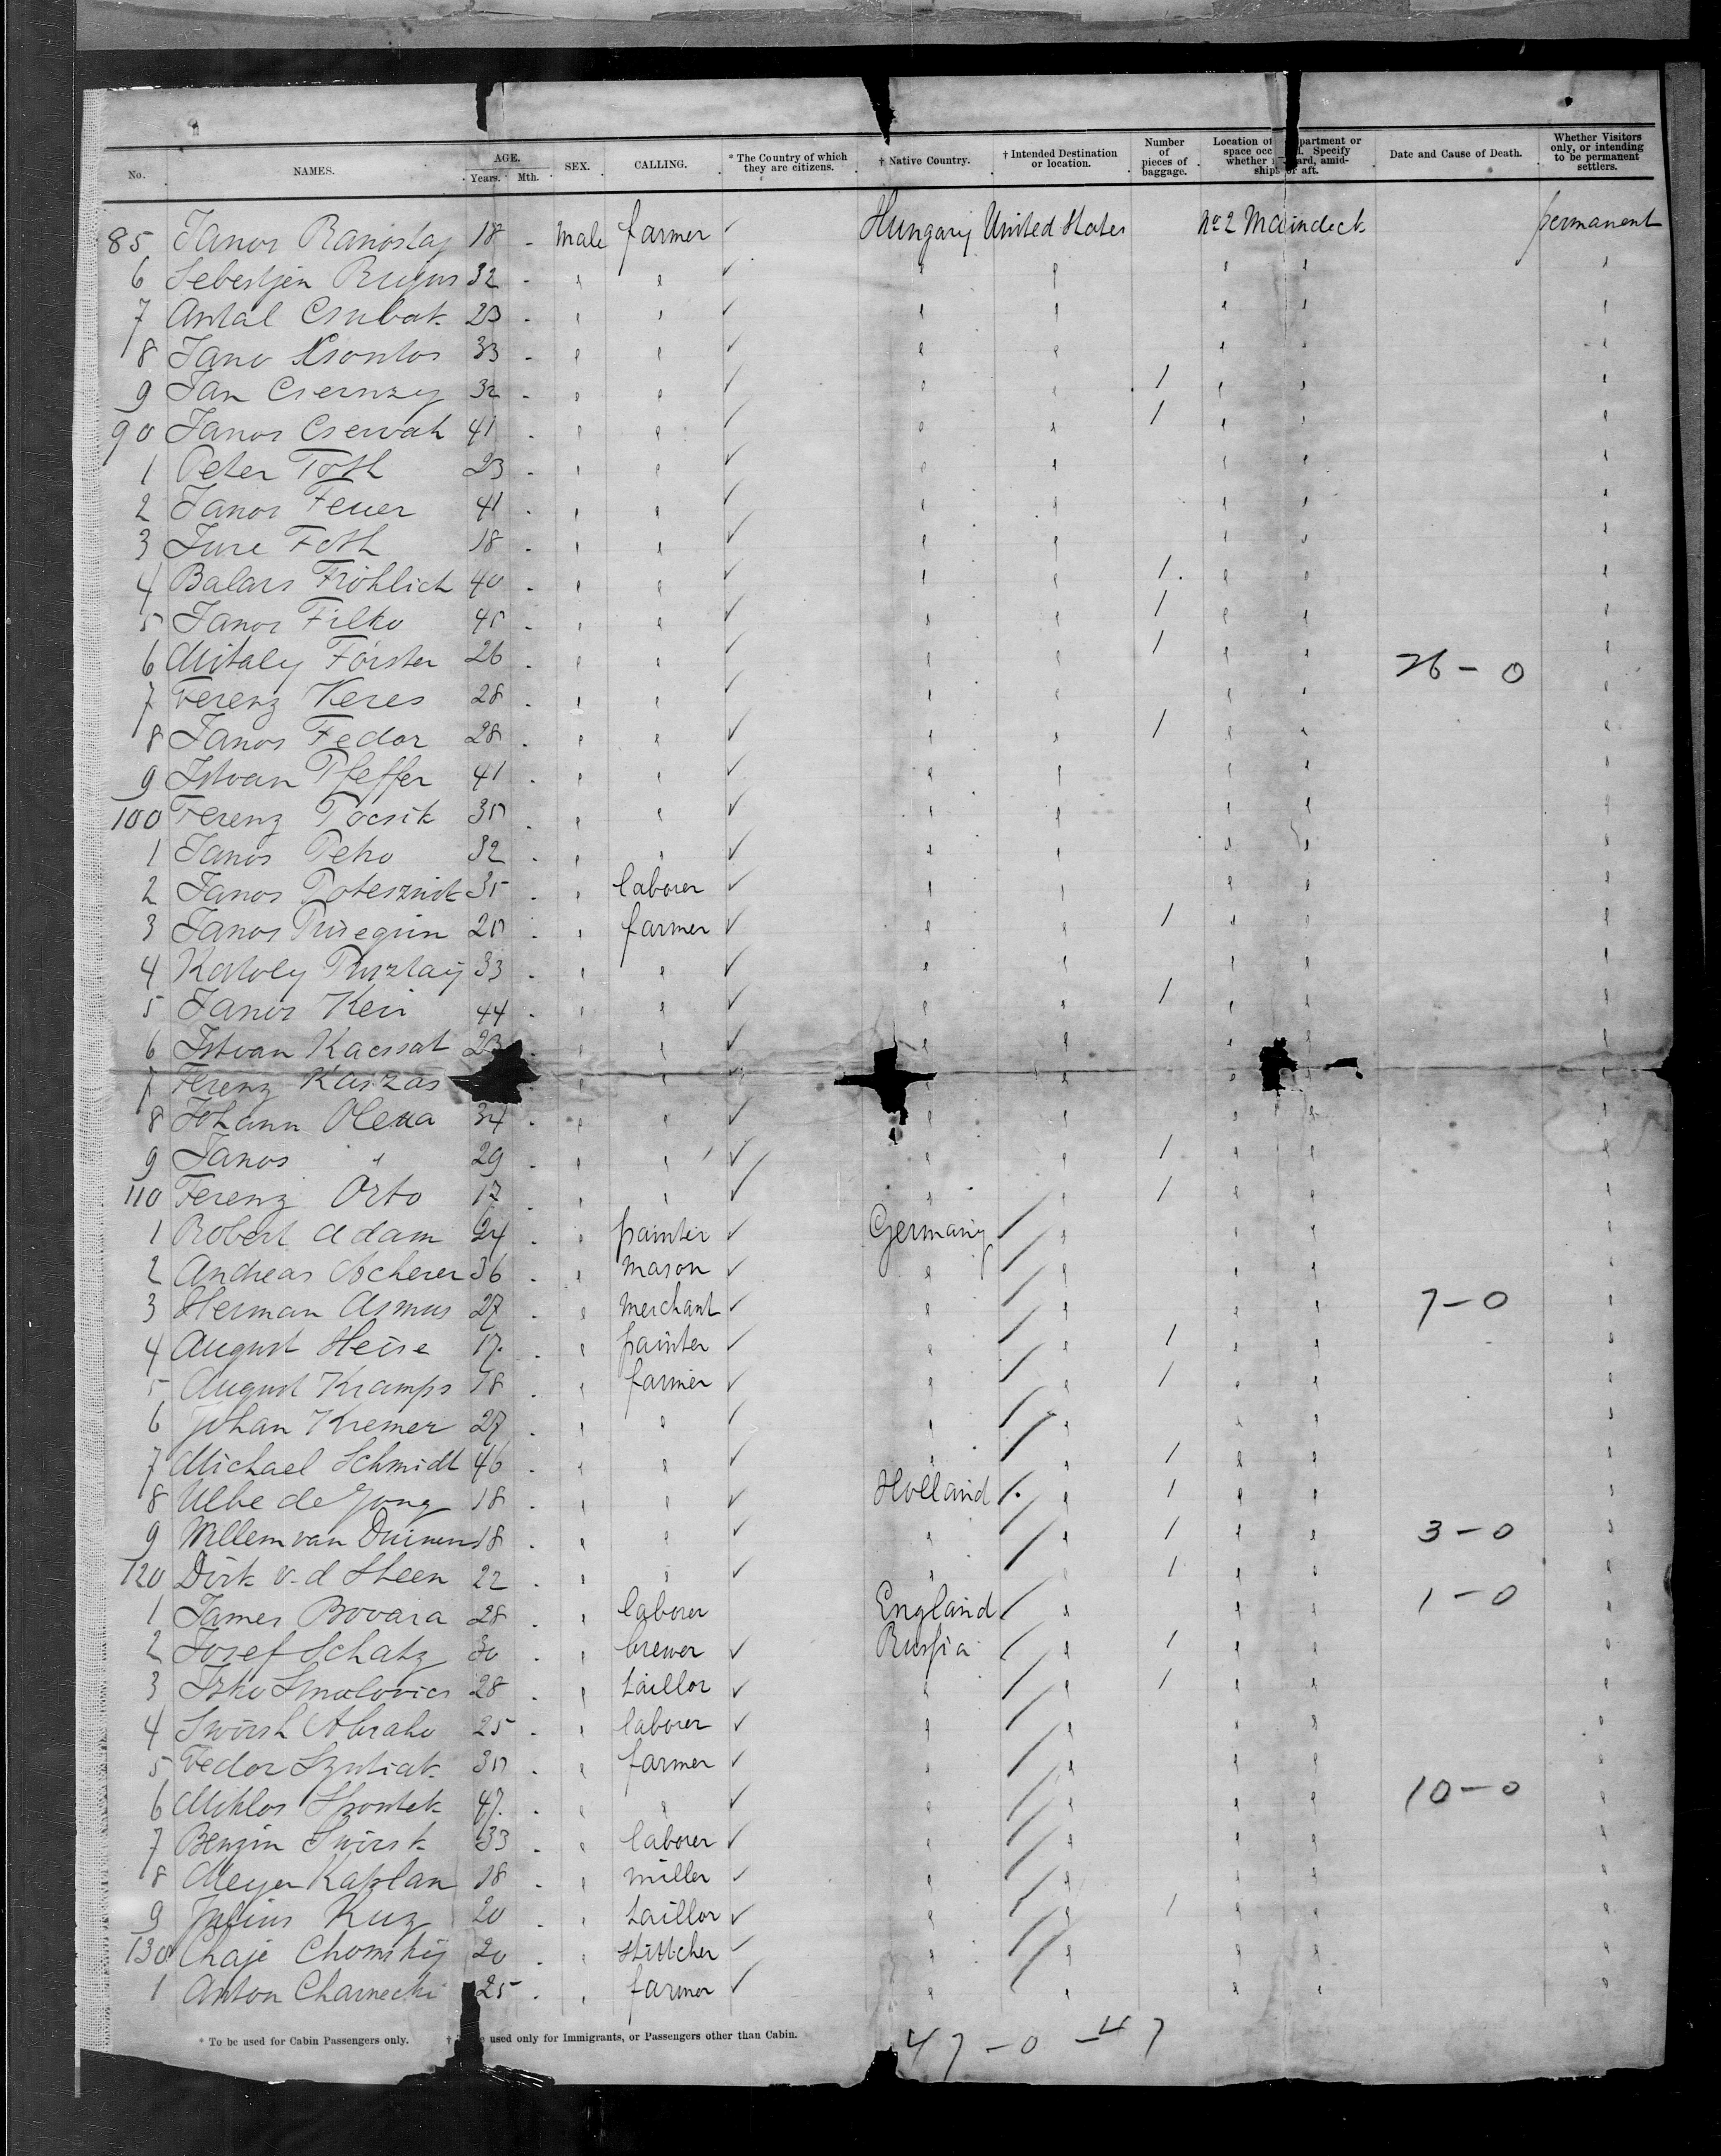 No. NAMES. AGE. Years. Mth. SEX. CALLING. * The Country of which they are citizens. † Native Country. † Intended Destination or location. Number of pieces of baggage. Location of space occ partment or d. Specify whether ard, amid-ships or aft. Date and Cause of Death. Whether Visitors only, or intending to be permanent settlers.
85 Janos 18 - male farmer ✓ Hungary United States No 2 Maindeck permanent
6 Sebestjen 32 - " " ✓ " " " " "
7 Antal Csubak 23 - " " ✓ " " " " "
8 Jano 33 - " " ✓ " " " " "
9 Jan Csernzy 32 - " " ✓ " " 1 " " "
90 Janos Cservak 41 - " " ✓ " " 1 " " "
1 Peter Toth 23 - " " ✓ " " " " "
2 Janos Feuer 41 - " " ✓ " " " " "
3 Jure Foth 18 - " " ✓ " " " " "
4 Balars Fröhlich 40 - " " ✓ " " 1 " " "
5 Janos Filko 45 - " " ✓ " " 1 " " "
6 Mihaly Förster 26 - " " ✓ " " 1 " " 26 - 0 "
7 Ferenz Keres 28 - " " ✓ " " " " "
8 Janos Fedor 28 - " " ✓ " " 1 " " "
9 Istvan Pfeffer 41 - " " ✓ " " " " "
100 Ferenz Pocsik 30 - " " ✓ " " " " "
1 Janos Peho 32 - " " ✓ " " " " "
2 Janos 35 - " laborer ✓ " " " " "
3 Janos 20 - " farmer ✓ " " 1 " " "
4 Karoly Pusztay 33 - " " ✓ " " " " "
5 Janos Keri 44 - " " ✓ " " 1 " " "
6 Istvan Kacssat 23 - " " ✓ " " " " "
7 Ferenz Kaszas " " ✓ " " " "
8 Johann Olexa 34 - " " ✓ " " " " "
9 Janos " 29 - " " ✓ " " 1 " " "
110 Ferenz Orto 17 - " " ✓ " " 1 " " "
1 Robert Adam 24 - " painter ✓ Germany " " " "
2 Andreas Ascherer 36 - " mason ✓ " " " " "
3 Herman Asmus 27 - " merchant ✓ " " " " 7 - 0 "
4 August Heise 17 - " painter ✓ " " 1 " " "
5 August Kramps 18 - " farmer ✓ " " 1 " " "
6 Johan Kremer 27 - " " ✓ " " " " "
7 Michael Schmidt 46 - " " ✓ " " 1 " " "
8 Ulbe de Jong 18 - " " ✓ Holland " 1 " " "
9 Willem van Duinen 18 - " " ✓ " " 1 " " 3 - 0 "
120 Dirk v. d Steen 22 - " " ✓ " " 1 " " "
1 James Bovara 28 - " laborer England " " " 1 - 0 "
2 Josef Schatz 30 - " brewer ✓ Russia " 1 " " "
3 Izko Smolovics 28 - " taillor ✓ " " 1 " " "
4 Swirsk Abraho 25 - " laborer ✓ " " " " "
5 Fedor Szutiak 30 - " farmer ✓ " " " " "
6 Miklos Spontek 47 - " " ✓ " " " " 10 - 0 "
7 Benzin Swirsk 33 - " laborer ✓ " " " " "
8 Meyer Kaplan 18 - " miller ✓ " " " " "
9 Julius Kuz 20 - " taillor ✓ " " 1 " " "
130 Chaje Chomskij 20 - " stittcher ✓ " " " " "
1 Anton Charnecki 25 - " farmer ✓ " " " " "
* To be used for Cabin Passengers only. † used only for Immigrants, or Passengers other than Cabin.
47 - 0 - 47